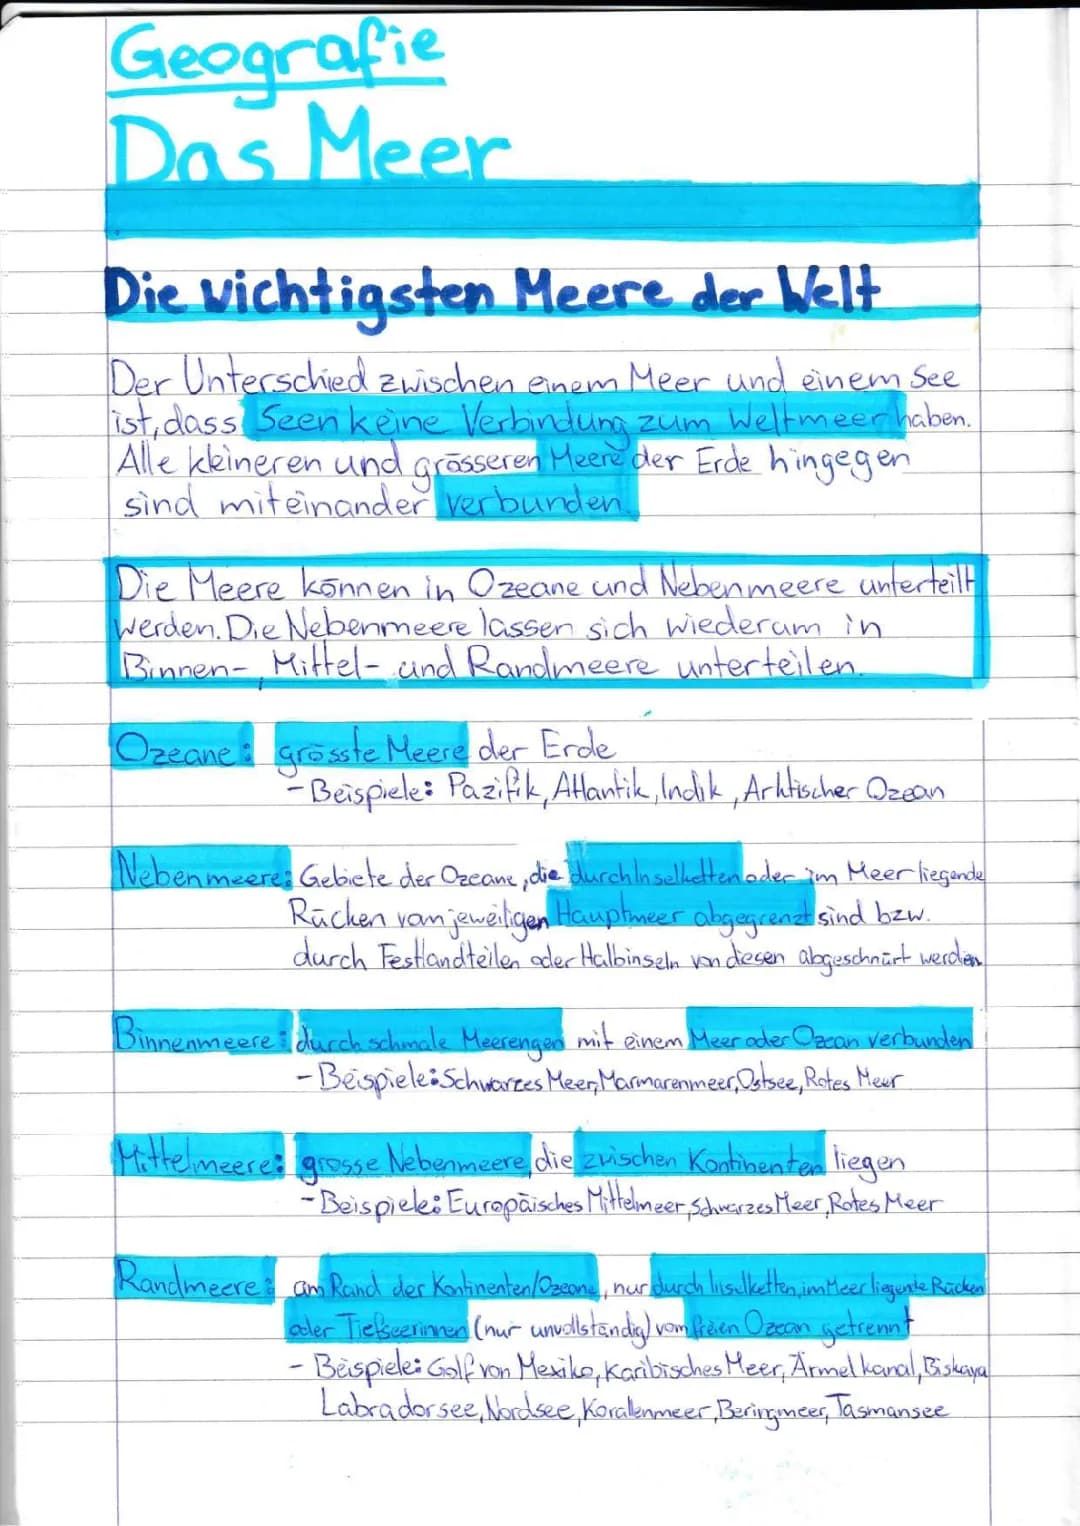 Geografie
Das Meer
Die wichtigsten Meere der Welt
Der Unterschied zwischen einem Meer und einem See
ist, dass Seen keine Verbindung zum Weltmeer haben.
Alle kleineren und grösseren Meere der Erde hingegen
sind miteinander verbunden.
Die Meere können in Ozeane und Nebenmeere unterteilt
werden. Die Nebenmeere lassen sich wiederum in
Binnen-, Mittel- und Randmeere unterteilen.
Ozeane: grösste Meere der Erde
- Beispiele: Pazifik, Atlantik, Indik, Arktischer Ozean
Nebenmeere: Gebiete der Ozeane, die durch Inselketten oder im Meer liegende
Rücken vom jeweiligen Hauptmeer abgegrenzt sind bzw.
durch Festlandteilen oder Halbinseln von diesen abgeschnürt werden
Binnenmeere: durch schmale Meerengen mit einem Meer oder Ozean verbunden
- Beispiele: Schwarzes Meer, Marmarenmeer, Ostsee, Rotes Meer
Mittelmeere: grosse Nebenmeere, die zwischen Kontinenten liegen
- Beispiele: Europäisches Mittelmeer, Schwarzes Meer, Rotes Meer
Randmeere: am Rand der Kontinenten/Ozeane, nur durch Inselketten, im Meer liegente Rücken
oder Tiefseerinnen (nur unvollständig) vom freien Ozean getrennt
- Beispiele: Golf von Mexiko, Karibisches Meer, Ärmelkanal, Biskaya
Labradorsee, Nordsee, Korallenmeer, Beringmeer, Tasmansee